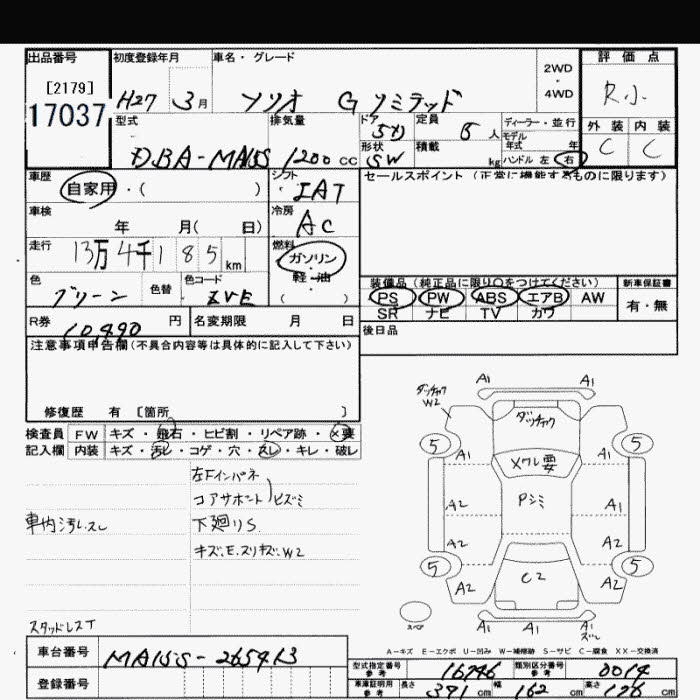 出品番号 初度登録年月 車名・グレード 2WD・4WD 評価点
[2179]
17037
H27 3月 ソリオ G リミテッド R小
型式 排気量 ドア 5ドア 定員 5人 ディーラー・並行 外装 内装
モデル年式 年
DBA-MA15S 1200cc 形状 SW 積載 kg ハンドル 左 右 C C
車歴 シフト セールスポイント (正常に機能するものに限ります)
自家用・( ) IAT
車検 冷房
年 月( 日) AC
走行 13万4千185km 燃料
ガソリン
軽・油
( )
色 グリーン 色替 色コード ZVE
装備品(純正品に限り○をつけてください) 新車保証書
PS PW ABS エアB AW 有・無
SR ナビ TV カワ
R券 10490円 名変期限 月 日
後日品
注意事項申告欄(不具合内容等は具体的に記入して下さい)
修復歴 有 [箇所 ]
検査員 FW キズ・飛石・ヒビ割・リペア跡・×要
記入欄 内装 キズ・汚レ・コゲ・穴・スレ・キレ・破レ
左Fインパネ
コアサポート ヒズミ
車内汚レスレ 下廻りS.
キズ.E.スリキズ.W2
スタッドレスT
A1 A1
W2
5 5
A1 A1
Xワレ要
A2 Pシミ A1
A2 A2
5 5
A2 C2 A2
スペア A1 A1 A1
A-キズ E-エクボ U-凹み W-補修跡 S-サビ C-腐食 XX-交換済
車台番号 MA15S-265413
登録番号
型式指定番号 参考 16746 類別区分番号 参考 0014
車庫証明用 参考 長さ 371cm 幅 162cm 高さ 176cm